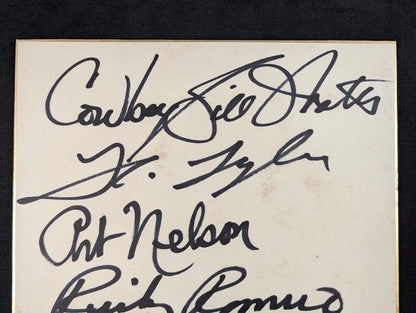 Cowboy Bill Watts
H. Tyler
Art Nelson
Ricky Romero